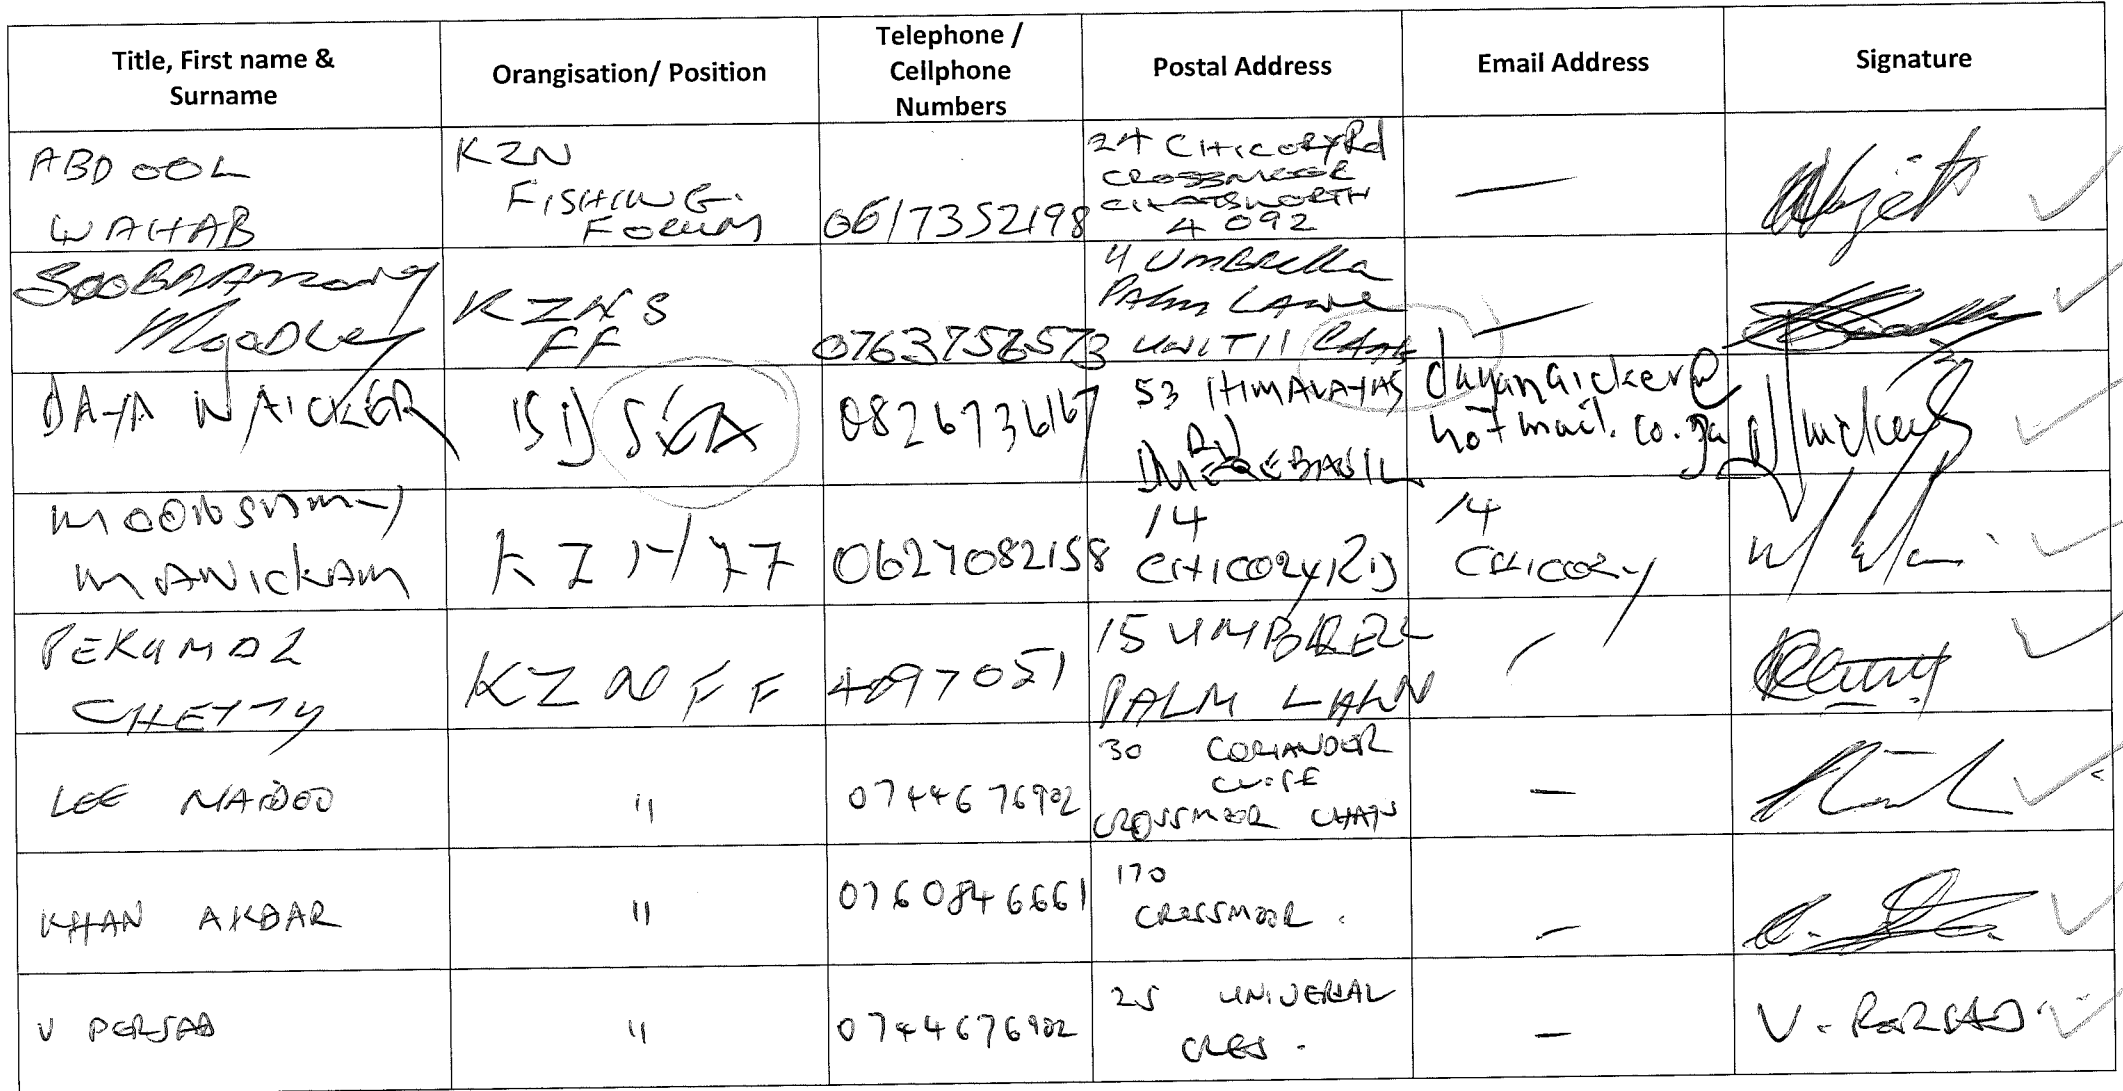 Title, First name &
Surname
Orangisation/ Position
Telephone /
Cellphone
Numbers
Postal Address
Email Address
Signature
ABDOOL
WAHAB
KZN
FISHING
FORUM
0617352198
24 CHICORY Rd
CROSSMOOR
CHATSWORTH
4092
—
Moodley
KZNS
FF
0763756573
4 Umbrella
Palm Lane
UNIT 11
—
DAYA NAICKER
SD
0826736167
53 HIMALAYAS
RD
MEREBANK
dayanaicker@
hotmail.co.za
MANICKAM
KZNFF
0627082158
14
CHICORY RD
14
CHICORY
PERUMAL
CHETTY
KZNFF
4097051
15 UMBRELL
PALM LAWN
LEE NAIDOO
"
0744676902
30 CORIANDOR
CLOSE
CROSSMOOR CHATS
—
KHAN AKBAR
"
0760846661
170
CROSSMOOR.
—
V PERSAD
"
0744676902
25 UNIVERSAL
CRES.
—
V. PERSAD